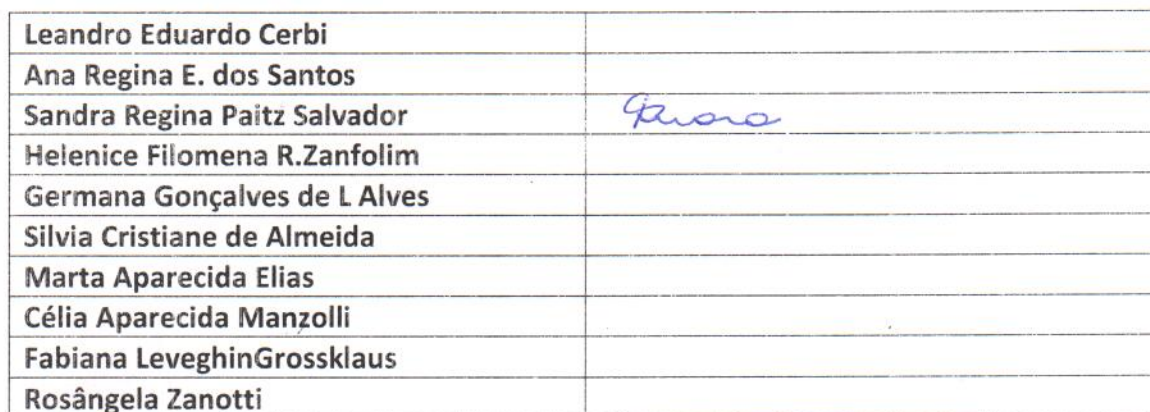 Leandro Eduardo Cerbi
Ana Regina E. dos Santos
Sandra Regina Paitz Salvador
Helenice Filomena R.Zanfolim
Germana Gonçalves de L Alves
Silvia Cristiane de Almeida
Marta Aparecida Elias
Célia Aparecida Manzolli
Fabiana LeveghinGrossklaus
Rosângela Zanotti